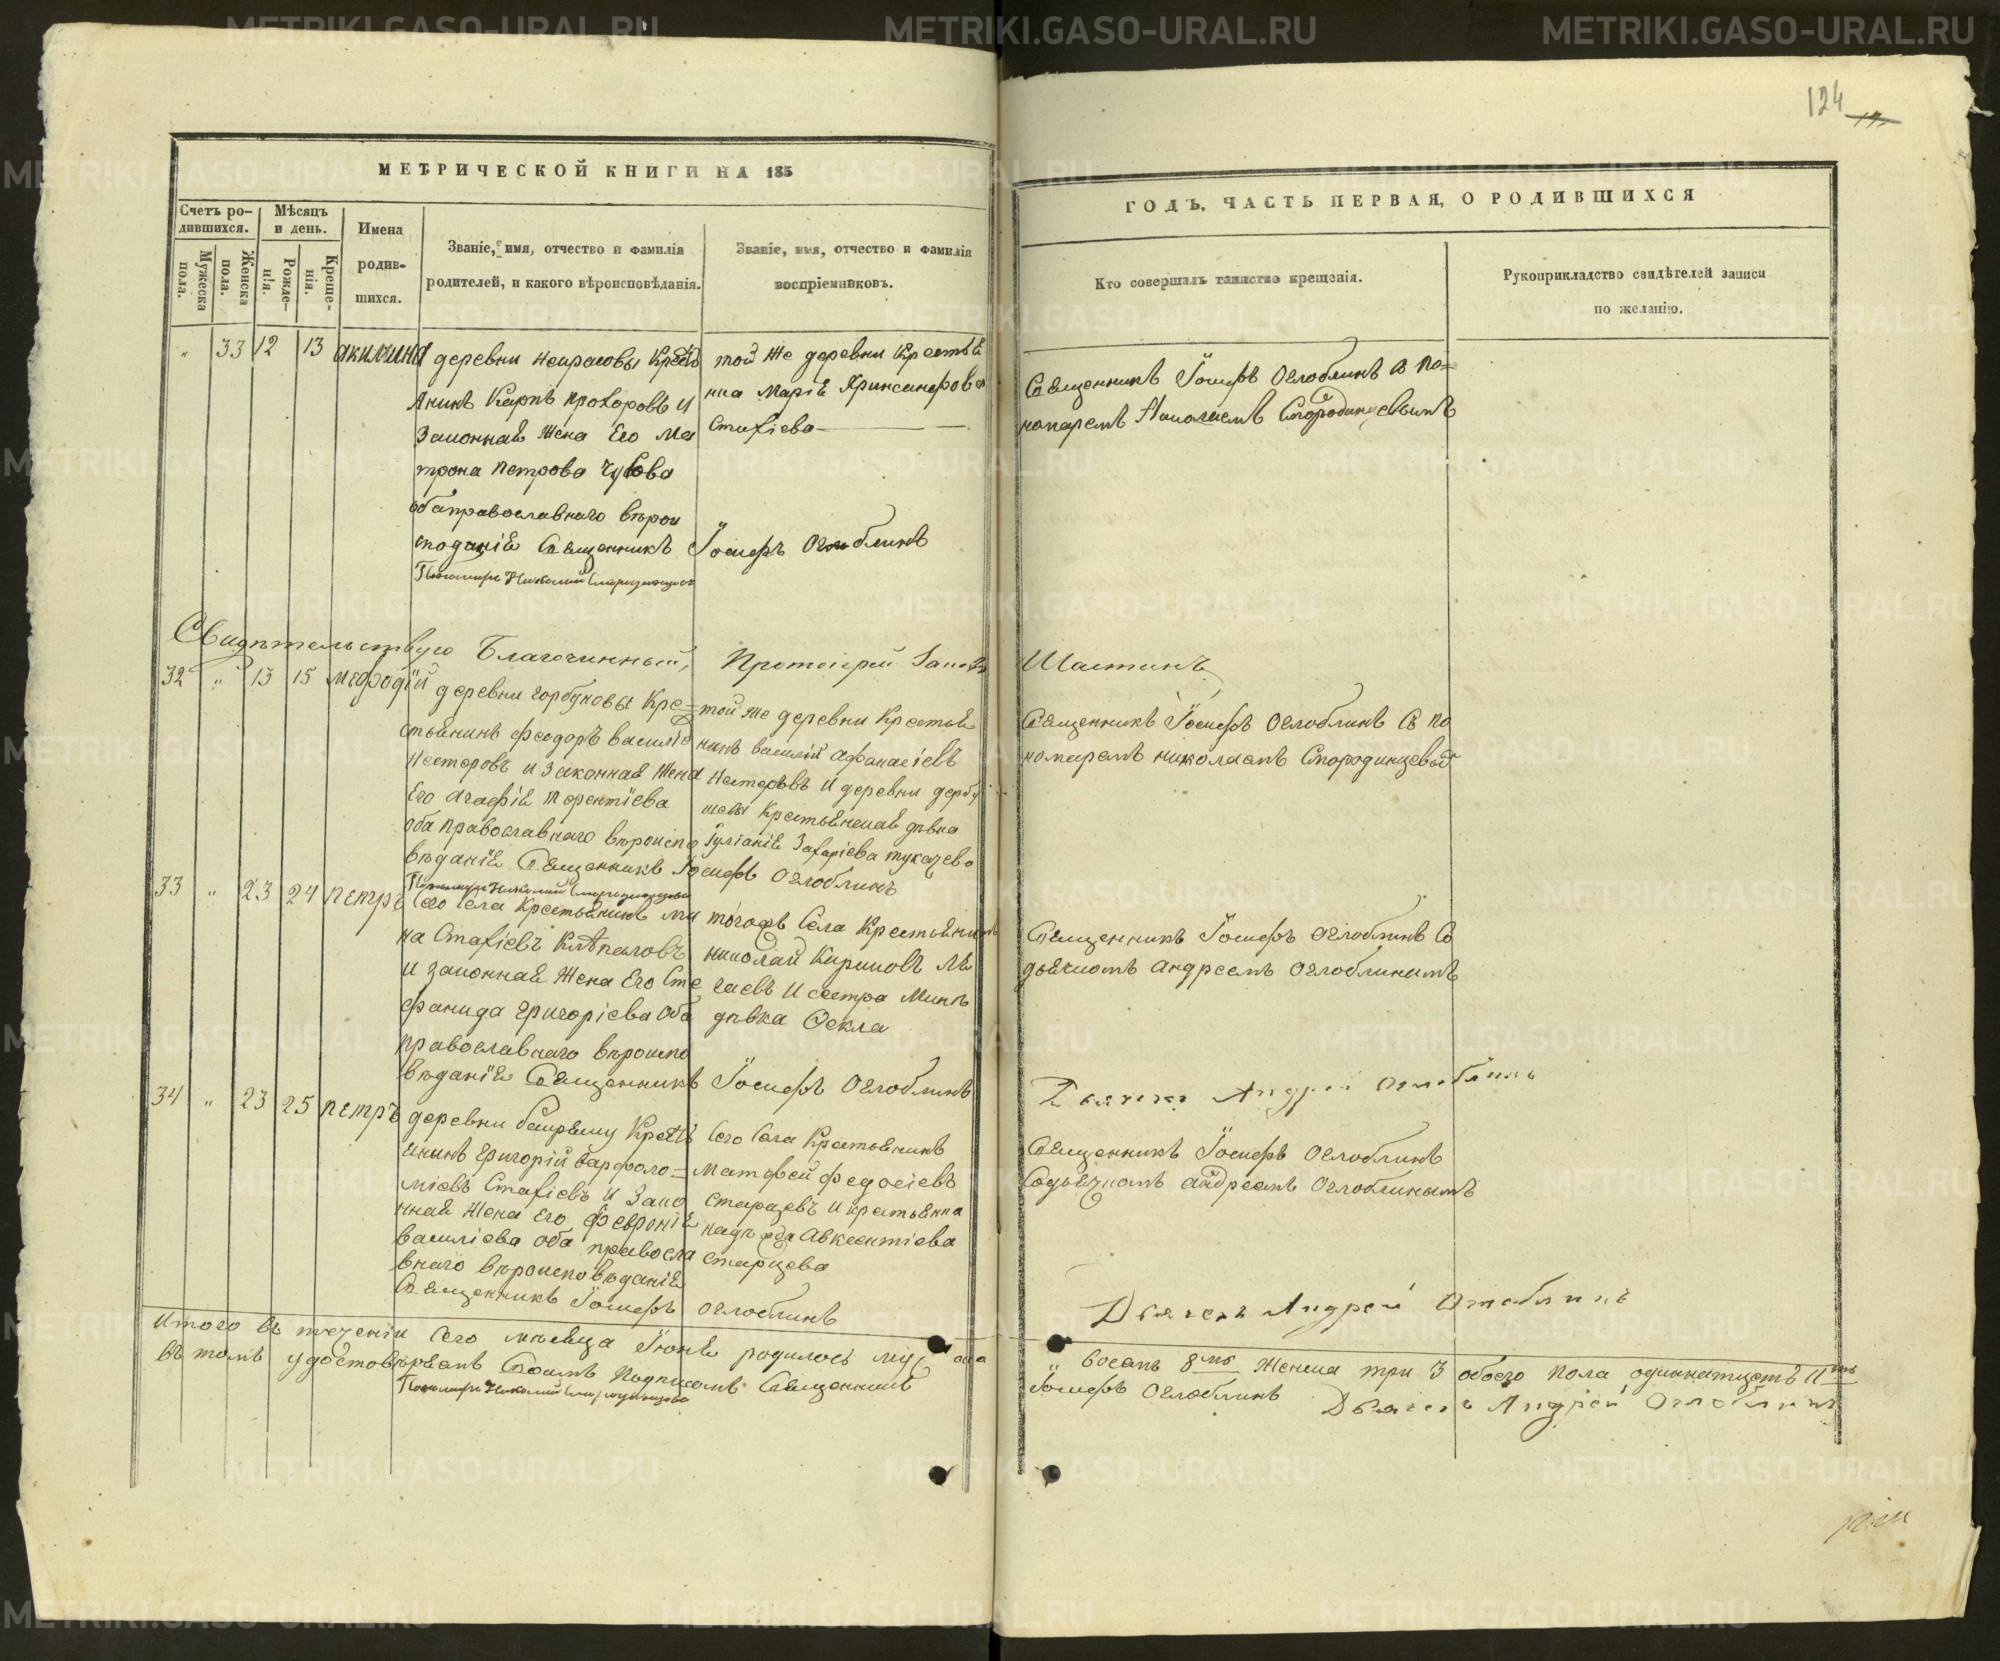 124
МЕТРИЧЕСКОЙ КНИГИ НА 185
ГОДЪ, ЧАСТЬ ПЕРВАЯ, О РОДИВШИХСЯ
Счетъ ро-
дившихся.
Мѣсяцъ
и день.
Имена
родив-
шихся.
Мужеска
пола.
Женска
пола.
Рожде-
нія.
Креще-
нія.
Званіе, имя, отчество и фамилія
родителей, и какого вѣроисповѣданія.
Званіе, имя, отчество и фамилія
воспріемниковъ.
Кто совершалъ таинство крещенія.
Рукоприкладство свидѣтелей записи
по желанію.
" 33 12 13 акилина
деревни Некрасовы Кресть
янинъ Карпъ прохоровъ и
Законная Жена Его Ма
трона петрова
оба православнаго вѣрои
споданія Священникъ Іосифъ Оглоблинъ
Пономарь Николай Смородинцовъ
той же деревни Крестья
нка Марія
Стахіева
Священникъ Іосифъ Оглоблинъ с по=
номаремъ Николаемъ Смородинцевымъ
Свидѣтельствую Благочинный, Протоіерей Шастинъ
32 " 13 15 мефодій
деревни горбуновы Кре=
стьянинъ феодоръ василіе
Нестеровъ и Законная Жена
Его Агафія терентіева
оба православнаго вѣроиспо
вѣданія Священникъ Іосифъ Оглоблинъ
Пономарь Николай Смородинцовъ
той же деревни Крестья
нинъ василій афанасіевъ
Нестеровъ и деревни дербу
шевы Крестьянская дѣвка
Іуліанія Захаріева тукачева
Священникъ Іосифъ Оглоблинъ Съ по
номаремъ николаемъ Смородинцевым
33 " 23 24 петръ
Сего Села Крестьянинъ ми
на Стахіевъ Клѣпаловъ
и законная Жена Его Сте
фанида григоріева Оба
православнаго вѣроиспо
вѣданія Священникъ Іосифъ Оглоблинъ
тогожъ Села Крестьянинъ
николай Кириловъ Ле
гаевъ и сестра Мины
дѣвка Фекла
Священникъ Іосифъ Оглоблинъ Со
дьячкомъ андреемъ оглоблинымъ
Дьячекъ Андрей Оглоблинъ
34 " 23 25 петръ
деревни Кресть
янинъ григорій варфоло=
міевъ Стахіевъ и Зако
нная Жена Его Февронія
василіева оба правосла
внаго вѣроисповѣданія
Священникъ Іосифъ оглоблинъ
Сего Села Крестьянинъ
матфей федосіевъ
старцевъ и крестьянка
надежда Авксентіева
старцева
Священникъ Іосифъ Оглоблинъ
Содьячкомъ андреемъ Оглоблинымъ
Дьячекъ Андрей Оглоблинъ
Итого въ теченіи Сего мѣсяца Іюня родилось муж ска восемь 8мь женска три 3 обоего пола одиннатцеть 11ть
въ томъ удостовѣряемъ Своимъ Подписомъ Священникъ Іосифъ Оглоблинъ
Пономарь Николай Смородинцовъ
Дьячекъ Андрей Оглоблинъ
METRIKI.GASO-URAL.RU